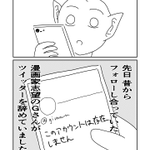 先日昔から
フォローし合っていた
漫画家志望のGさんが
ツイッターを辞めていました
このアカウントは存在
しません